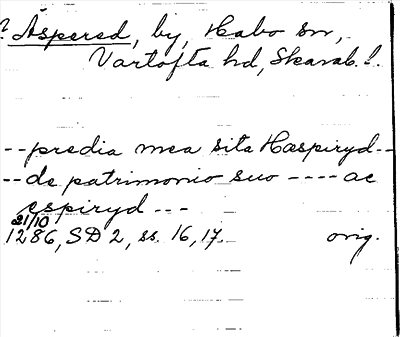 ? Äspered, by, Habo sn,
Vartofta hd, Skarab. l.
-- predia mea sita Hæspiryd --
-- de patrimonio suo ---- ac
espiryd ---
21/10
1286, SD 2, ss. 16, 17. orig.